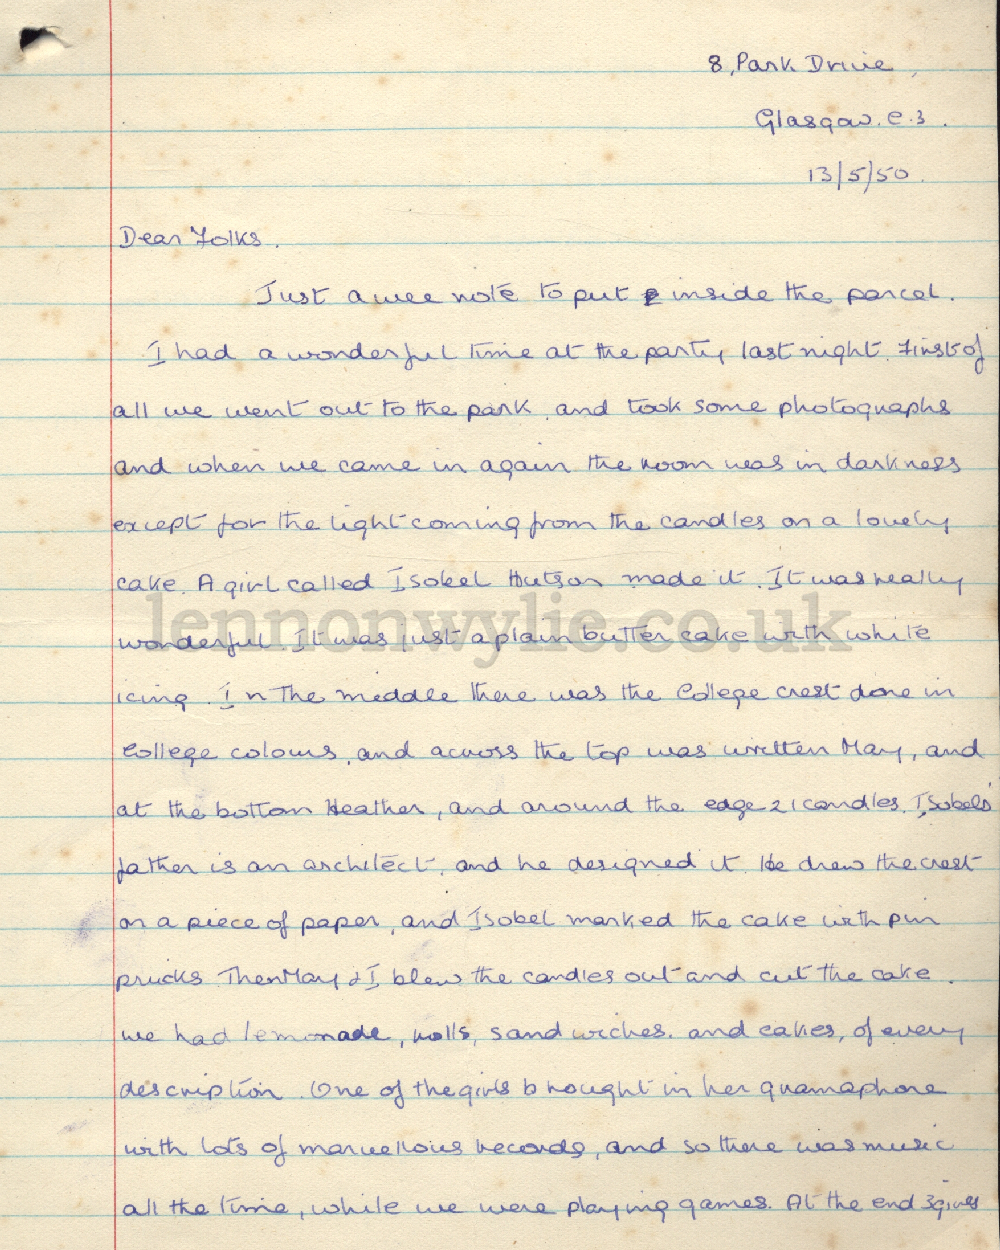 8, Park Drive,
Glasgow. C.3.
13/5/50.
Dear Folks.
Just a wee note to put inside the parcel.
I had a wonderful time at the party last night. First of
all we went out to the park, and took some photographs
and when we came in again the room was in darkness
except for the light coming from the candles on a lovely
cake. A girl called Isobel Hutson made it. It was really
lennonwylie.co.uk
wonderful. It was just a plain butter cake with white
icing. In The middle there was the College crest done in
College colours, and across the top was written May, and
at the bottom Heather, and around the edge 21 candles. Isobels'
father is an architect, and he designed it. He drew the crest
on a piece of paper, and Isobel marked the cake with pin
pricks. Then May & I blew the candles out and cut the cake.
We had lemonade, rolls, sandwiches. and cakes, of every
description. One of the girls brought in her gramaphone
with lots of marvellous records, and so there was music
all the time, while we were playing games. At the end 3 girls